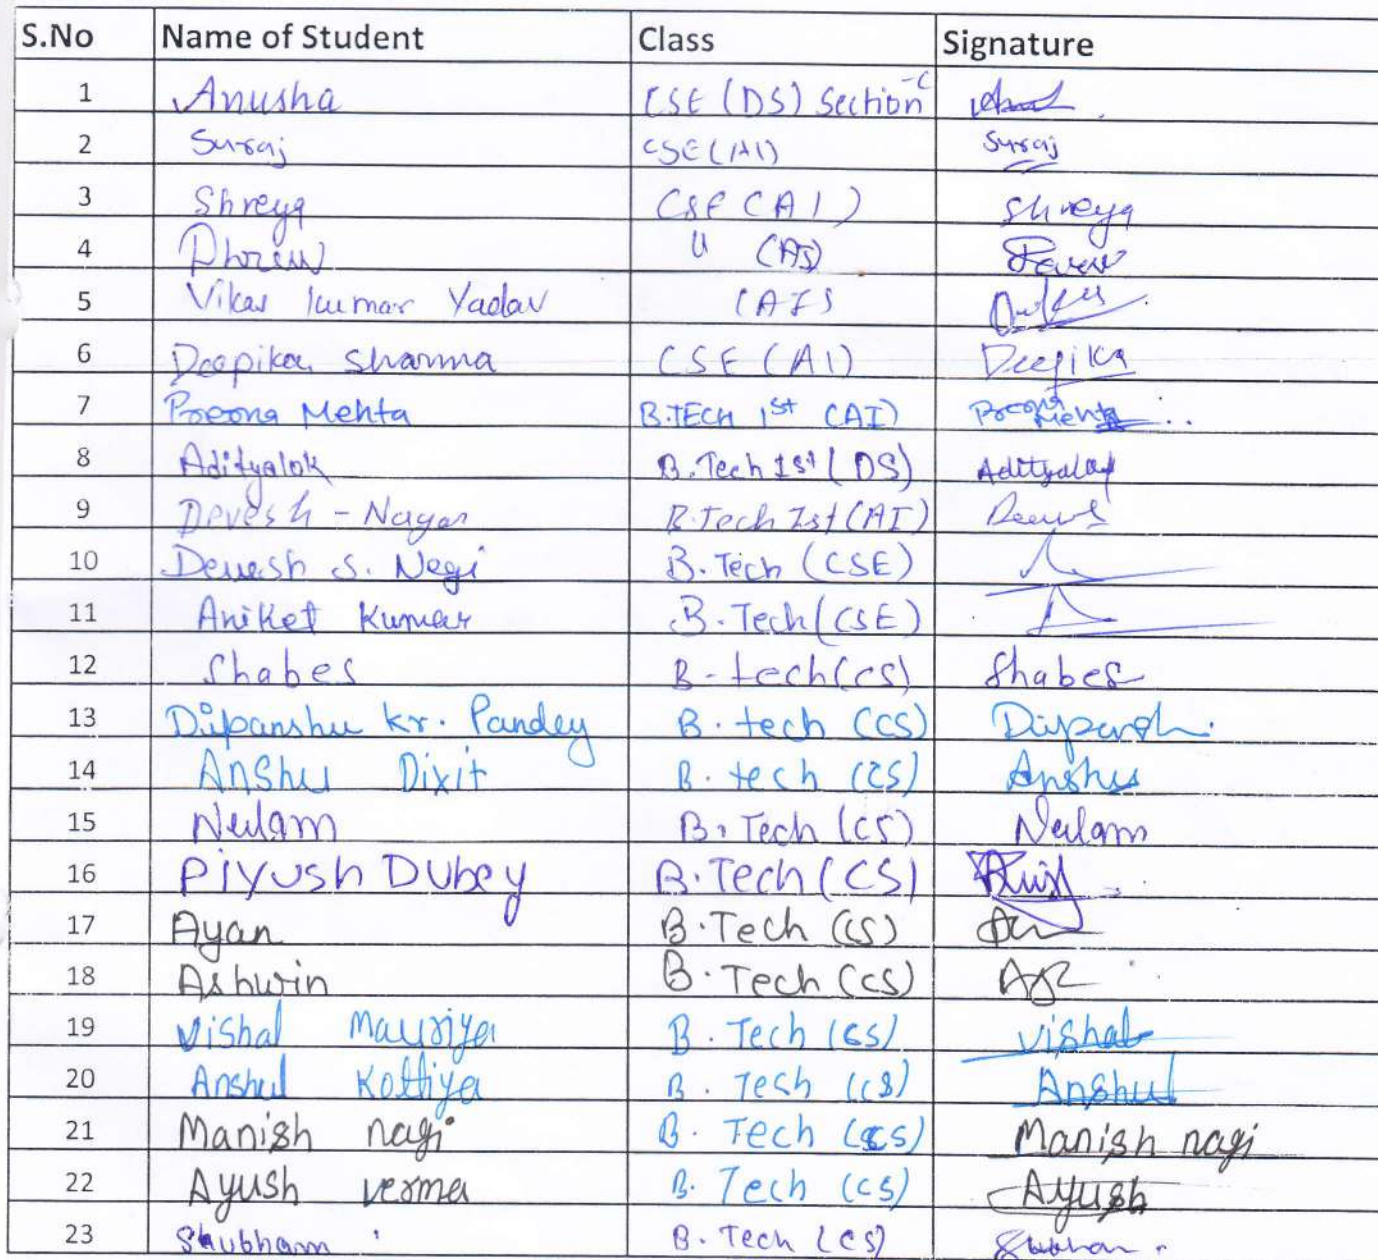 S.No Name of Student Class Signature
1 Anusha CSE (DS) Section-C
2 Suraj CSE (AI) Suraj
3 Shreya CSE (AI) Shreya
4 Dhruv " (AI)
5 Vikas Kumar Yadav (AI)
6 Deepika Sharma CSE (AI) Deepika
7 Prerna Mehta B.TECH 1st (AI) Prerna Mehta
8 Adityalok B.Tech 1st (DS) Adityalok
9 Devesh - Nagar B.Tech Ist (AI)
10 Devesh S. Negi B.Tech (CSE)
11 Aniket Kumar B.Tech (CSE)
12 Shabes B-tech (CS) Shabes
13 Dipanshu kr. Pandey B.tech (CS)
14 Anshu Dixit B.tech (CS) Anshu
15 Neelam B.Tech (CS) Neelam
16 Piyush Dubey B.Tech (CS)
17 Ayan B.Tech (CS)
18 Ashwin B.Tech (CS)
19 Vishal Mauriya B.Tech (CS) Vishal
20 Anshul Kottiya B.Tech (CS) Anshul
21 Manish nagi B.Tech (CS) Manish nagi
22 Ayush verma B.Tech (CS) Ayush
23 Shubham B.Tech (CS)